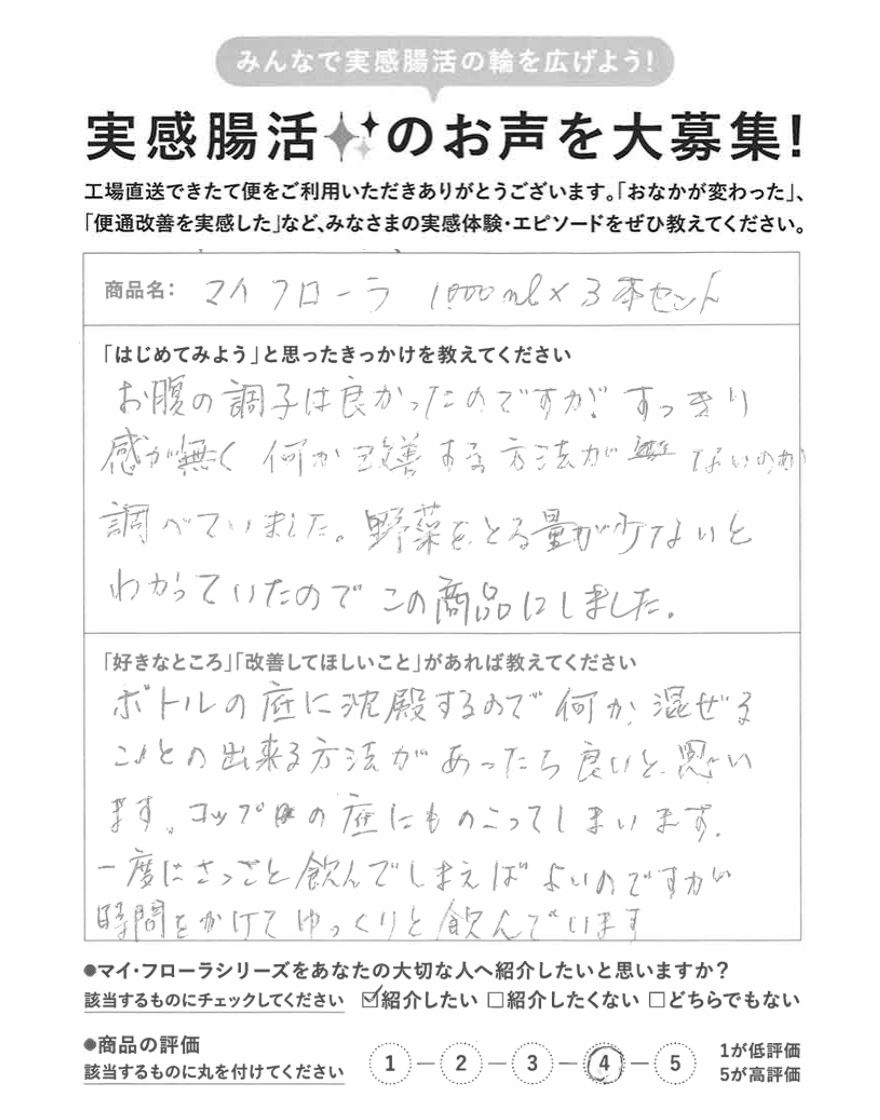 みんなで実感腸活の輪を広げよう!
実感腸活のお声を大募集!
工場直送できたて便をご利用いただきありがとうございます。「おなかが変わった」、
「便通改善を実感した」など、みなさまの実感体験・エピソードをぜひ教えてください。
商品名: マイフローラ 1000ml×3本セット
「はじめてみよう」と思ったきっかけを教えてください
お腹の調子は良かったのですが、すっきり
感が無く 何か改善する方法が ないのか
調べていました。野菜をとる量が少ないと
わかっていたのでこの商品にしました。
「好きなところ」「改善してほしいこと」があれば教えてください
ボトルの底に沈殿するので何か混ぜる
ことの出来る方法があったら良いと思い
ます。コップの底にものこってしまいます。
一度にさっさと飲んでしまえばよいのですが
時間をかけてゆっくりと飲んでいます
●マイ・フローラシリーズをあなたの大切な人へ紹介したいと思いますか?
該当するものにチェックしてください ☑紹介したい □紹介したくない □どちらでもない
●商品の評価
該当するものに丸を付けてください
1 2 3 4 5
1が低評価
5が高評価